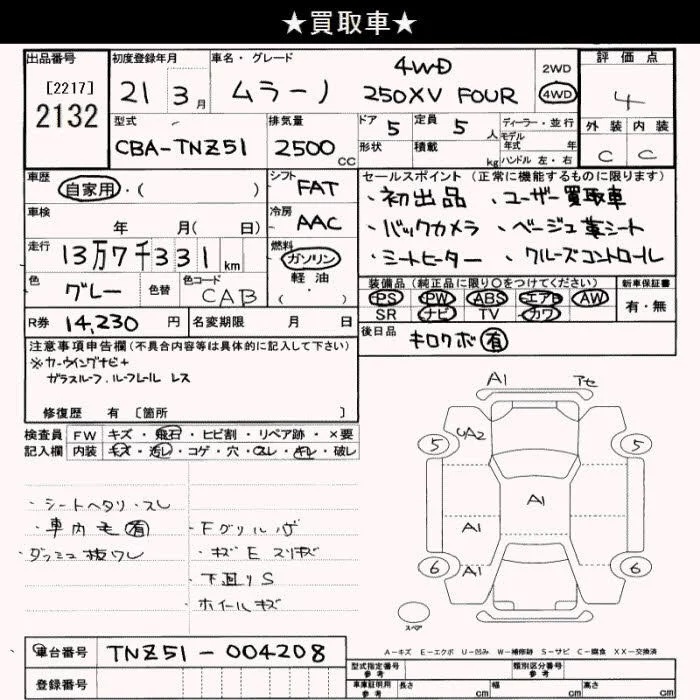 ★買取車★
出品番号 初度登録年月 車名・グレード 4WD 2WD 評価点
[2217] 2132 21 3月 ムラーノ 250XV FOUR 4WD 4
型式 排気量 ドア 5 定員 5人 ディーラー・並行 外装 内装
CBA-TNZ51 2500CC 形状 積載 kg モデル年式 年 C C
ハンドル 左・右
車歴 自家用・( ) シフト FAT セールスポイント (正常に機能するものに限ります)
・初出品 、ユーザー買取車
車検 年 月( 日) 冷房 AAC ・バックカメラ 、ベージュ革シート
走行 13万7千331km 燃料 ガソリン 軽油 ( ・ ) ・シートヒーター 、クルーズコントロール
色 グレー 色替 色コード CAB 装備品 (純正品に限り○をつけてください) 新車保証書
PS PW ABS エアB AW 有・無
R券 14,230円 名変期限 月 日 SR ナビ TV カワ
注意事項申告欄 (不具合内容等は具体的に記入して下さい) 後日品 キロクボ有
※カーウイングナビ+
ガラスルーフ.ルーフレール レス
修復歴 有 〔箇所 〕
検査員 FW キズ・飛石・ヒビ割・リペア跡・×要
記入欄 内装 キズ・汚レ・コゲ・穴・スレ・キレ・破レ
A1 アセ
5 UA2 5
A1
A1
6 A1 6
スペア
・シートヘタリ・スレ
・車内モ有 ・Fグリルハゲ
・ダッシュ抜ワレ ・キズE スリキズ
・下廻りS
・ホイールキズ
A-キズ E-エクボ U-凹み W-補修跡 S-サビ C-腐食 XX-交換済
車台番号 TNZ51-004208 型式指定番号 参考 類別区分番号 参考
登録番号 車庫証明用 参考 長さ cm 幅 cm 高さ cm